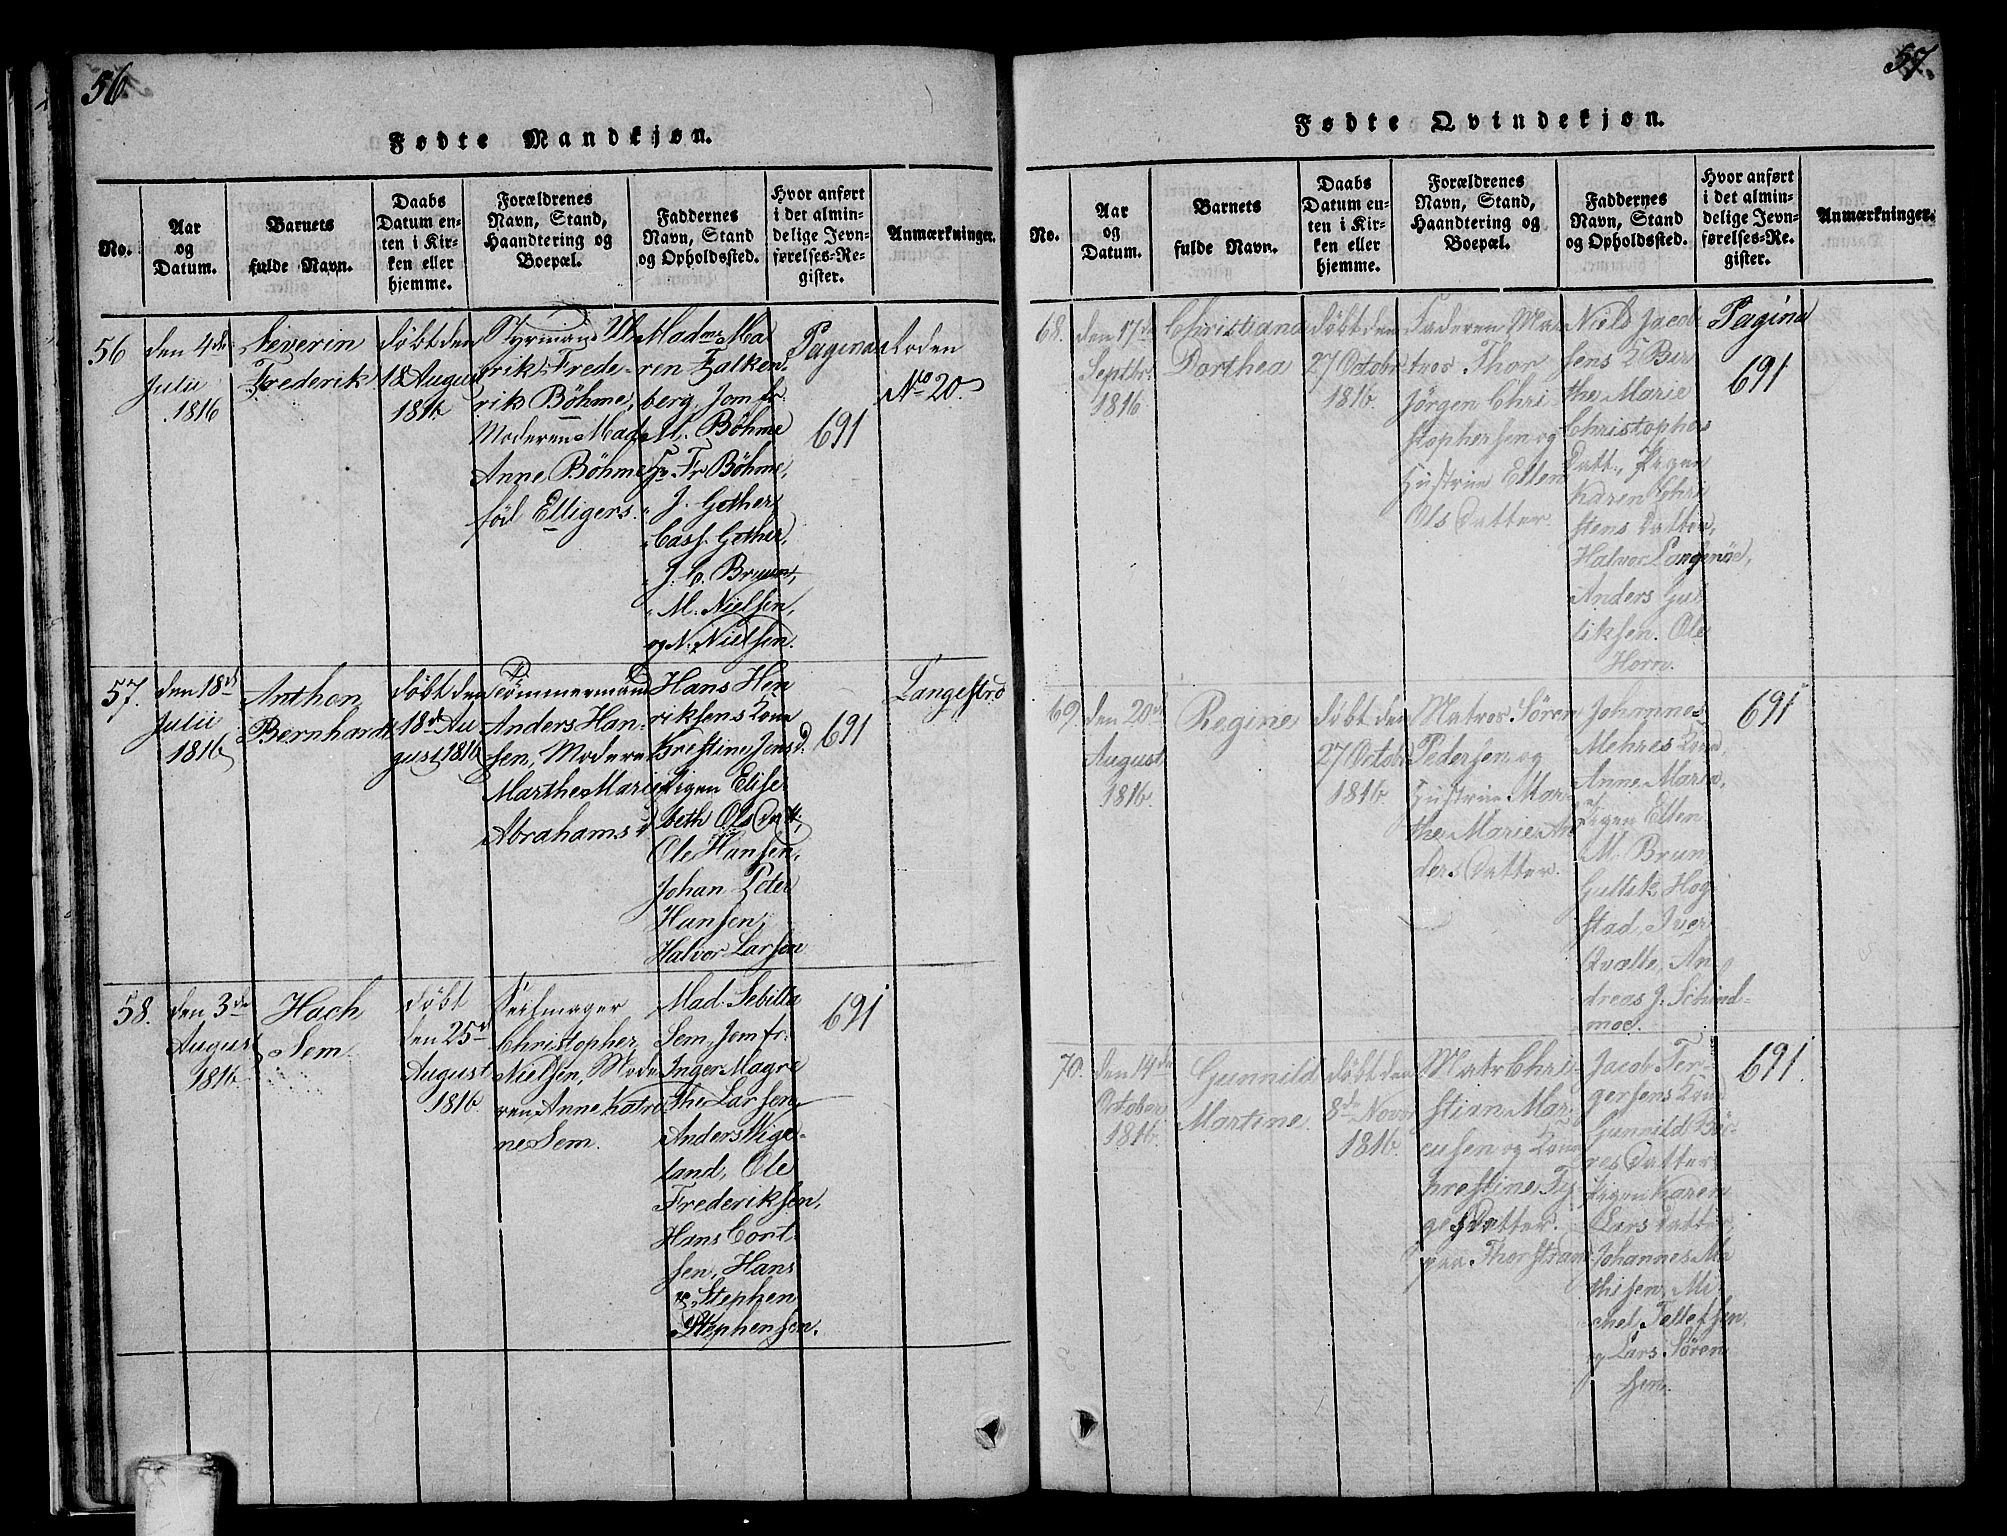 56.
Fødte Mandkjøn.
No.
Aar
og
Datum.
Barnets
fulde Navn.
Daabs
Datum en-
ten i Kir-
ken eller
hjemme.
Forældrenes
Navn, Stand,
Haandtering og
Boepæl.
Faddernes
Navn, Stand
og Opholdssted.
Hvor anført
i det almin-
delige Jevn-
førelses-Re-
gister.
Anmærkninger.
56
den 4de
Julii
1816
Severin
Frederik
døbt den
18 August
1816
Styrmand Ul-
rik Frede-
rik Böhme,
Moderen Mad.
Anne Böhme
föd Elligers.
Madme Ma
ren Falken
berg, Jomfr.
M. Böhme
Hr Fr Böhme,
" J. Gether,
" Cass. Gether,
" J. C. Bruun,
" M. Nielsen,
og N. Nielsen.
Pagina
691
Loden
No 20.
57.
den 18d
Julii
1816
Anthon
Bernhard
døbt den
18de Au
gust 1816
Tømmermand
Anders Han-
sen, Moderen
Marthe Marie
Abrahamsd
Hans Hen
riksens Kone
Kirstine Jensd.
Pigen Elise
beth Olsdatt.
Ole Hansen,
Johan Peter
Hansen,
Halvor Larsen
691
Langestrø
58.
den 3de
August
1816
Hach
Sem
døbt
den 25d
August
1816
Seilmager
Christopher
Nielsen, Mode
ren Anne Katri
ne Sem.
Mad. Sebilla
Sem, Jomfr.
Inger Magre
the Larsen,
Anders Vige-
land, Ole
Frederiksen,
Hans Cort
sen, Hans
og Stephen
Stephensen.
691
57.
Fødte Qvindekjøn.
No.
Aar
og
Datum.
Barnets
fulde Navn.
Daabs
Datum en-
ten i Kir-
ken eller
hjemme.
Forældrenes
Navn, Stand,
Haandtering og
Boepæl.
Faddernes
Navn, Stand
og Opholdssted.
Hvor anført
i det almin-
delige Jevn-
førelses-Re-
gister.
Anmærkninger.
68.
den 17de
Septbr.
1816
Christiana
Dorthea
døbt den
27 Octobr
1816.
Faderen Ma
tros Thor
Jörgen Chri
stophersen og
Hustrue Ellen
Ols Datter
Niels Jacob
sens K Bir
the Marie
Christophers
Datt., Pigen
Karen Chri
stens Datter,
Halvor Langenöe,
Anders Gul
liksen. Ole
Horn.
Pagina
691
69.
den 20de
August
1816.
Regine
døbt den
27 Octobr
1816.
Matros Sören
Pedersen og
Hustrue Mar-
the Marie An
ders Datter.
Johannes
Mehres Kone
Anne Marie,
Pigen Ellen
M. Brun,
Gullik Hog
stad, Iver
Qvalle, An
dreas J. Schind-
moe.
691
70.
den 14de
October
1816.
Gunnild
Martine
døbt den
8de Novbr
1816.
Matr Chri
stian Mar
cusen og Kone
Kirestine Ty
ges Datter.
paa Thorstrand
Jacob Ter-
gersens Kone
Gunnild Bör
res Datter
Pigen Karen
Lars Datter,
Johannes Ma
thisen, Mi
chel Tollefsen
og Lars Sören
sen.
691.